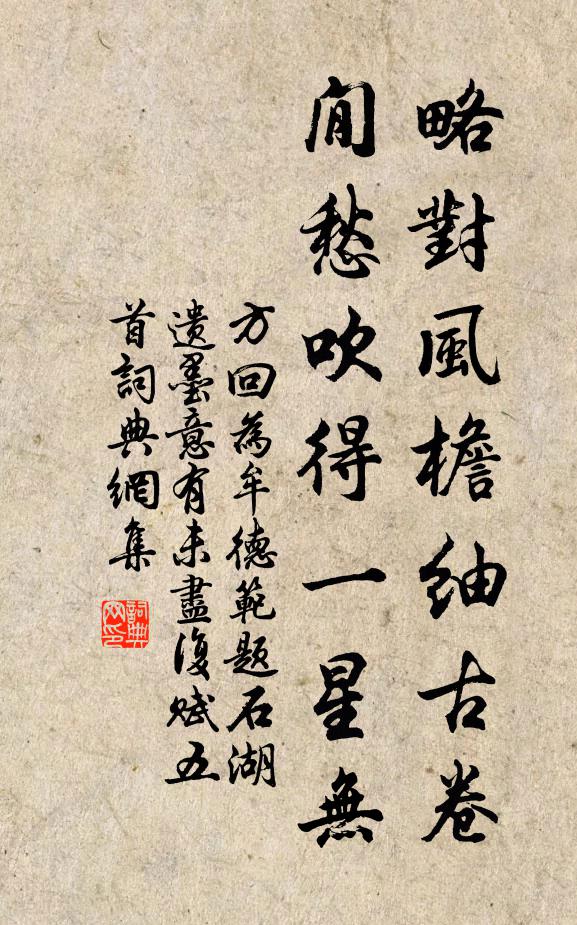 略對風檐紬古卷
閒愁吹得一星無
方回為牟德範題石湖
遺墨意有未盡復賦五
首詞典網集
詞典網印